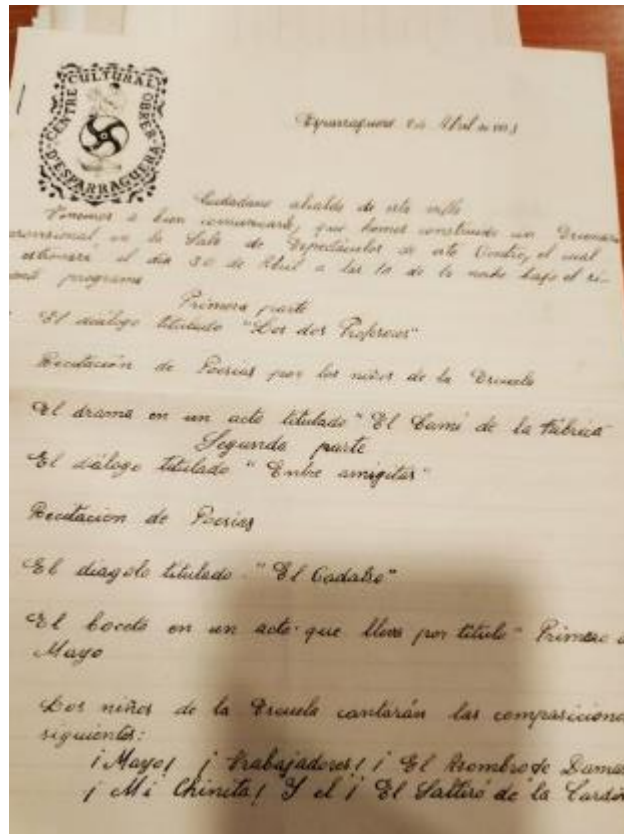 CENTRE CULTURAL OBRER D'ESPARRAGUERA
Esparraguera Abril
Ciudadano alcalde de esta villa
Tenemos a bien comunicarle, que hemos construido un
en la Sala de Espectáculos de este Centro, el cual
el dia 30 de Abril a las 10 de la noche bajo el si-
programa
Primera parte
El diálogo titulado "Los dos
Recitación de Poesias por los niños de la Escuela
El drama en un acto titulado "El Camí de la Fàbrica
Segunda parte
El diálogo titulado "Entre amigitas"
Recitación de Poesias
El diagolo titulado "El Cadalso"
El boceto en un acto que lleva por título "Primero
Mayo
Los niños de la Escuela cantarán las
siguientes:
¡Mayo! ¡Trabajadores! ¡El Asombro de
¡Mi Chinita! Y el ¡El Saltiró de la